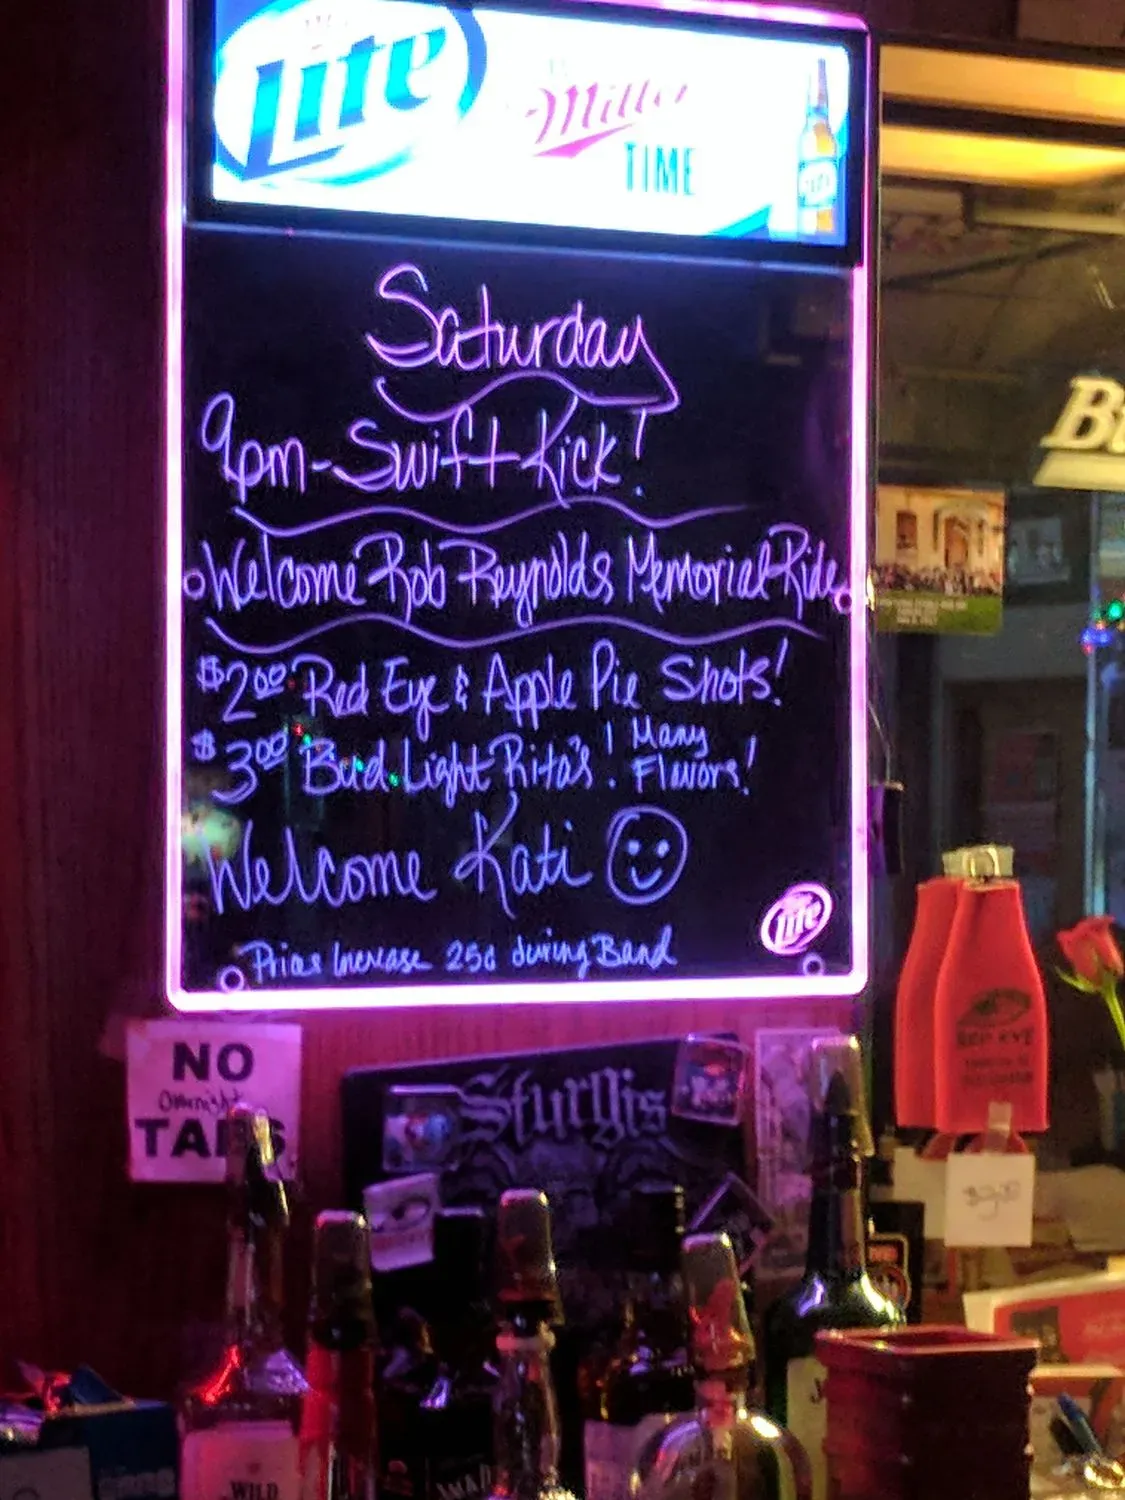 Lite
Miller
TIME
Saturday
9pm - Swift Kick!
Welcome Rob Reynolds Memorial Ride
$2.00 Red Eye & Apple Pie Shots!
$3.00 Bud Light Rita's! Many Flavors!
Welcome Kati
Lite
Prices Increase 25¢ during Band
NO
Overnight
TABS
Sturgis
RED EYE
WILD